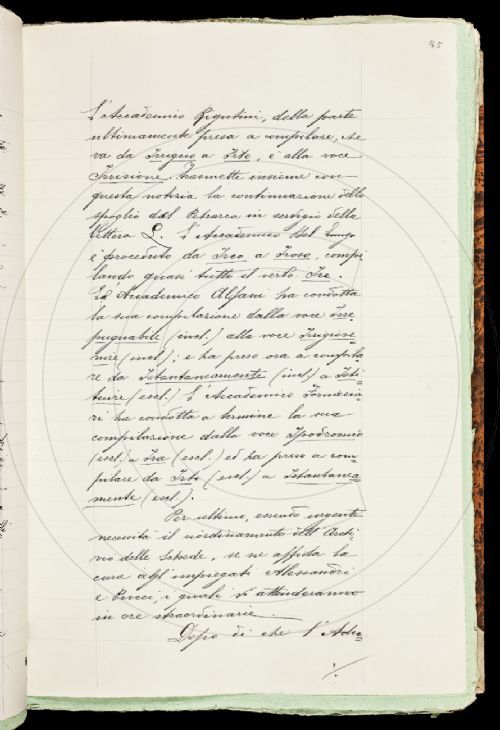 145
L'Accademico Rigutini, della parte
ultimamente presa a compilare, che
va da Irriguo a Irto, è alla voce
Irrisione, trasmette insieme con
questa notizia la continuazione dello
spoglio del Petrarca in servigio della
lettera L. L'Accademico Del Lungo
è proceduto da Irco a Irose, compi
lando quasi tutto il verbo Ire.
Ed Accademico Alfani ha condotta
la sua compilazione dalla voce Irre
pugnabile (incl.) alla voce Irrugine
nire (incl.); e ha preso ora a compila
re da Istantaneamente (incl.) a Isti
tuire (escl.) L'Accademico
ri ha condotta a termine la sua
compilazione dalla voce Ipodromio
(escl.) a Ira (escl.) ed ha preso a com
pilare da Irto (escl.) a Istantanea
mente (escl.).
Per ultimo, essendo urgente
necessità il riordinamento dell'Archi
vio delle Schede, se ne affida la
cura agl'impiegati Alessandri
e Pucci, i quali vi attenderanno
in ore straordinarie.
Dopo di che l'Adu